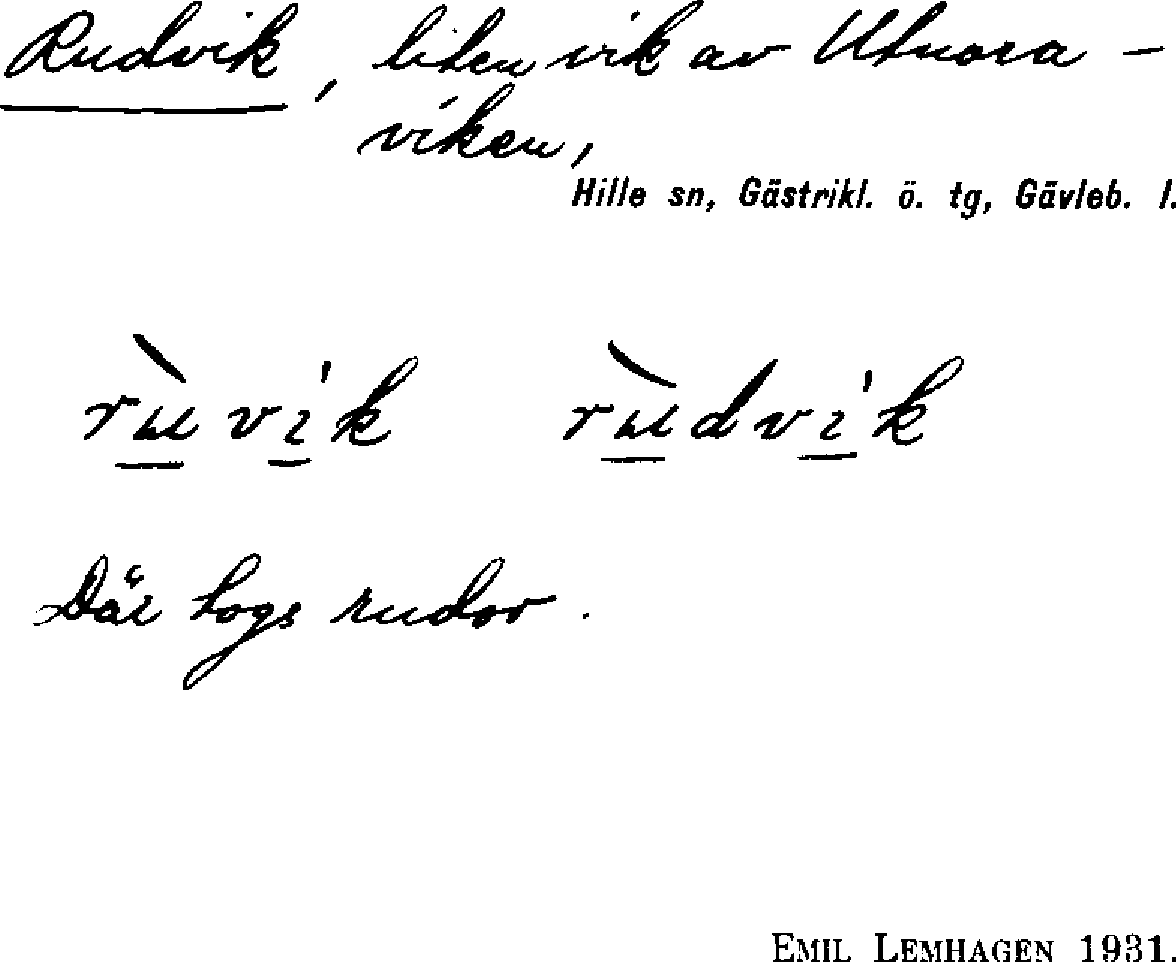 Rudvik, liten vik av Utnora-
viken,
Hille sn, Gästrikl. ö. tg, Gävleb. l.
rùvík rùdvík
Där togs rudor.
EMIL LEMHAGEN 1931.